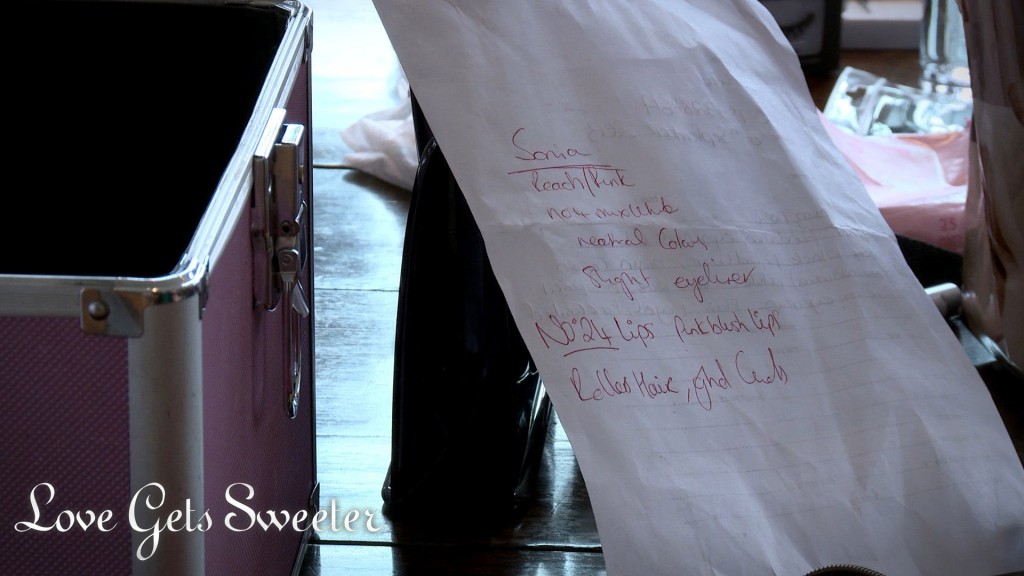 Sonia
Peach/Pink
not much white
neutral Colour
Slight eyeliner
No 24 Lips Pink blush lips
Roller Hair, ghd Curls
Love Gets Sweeter